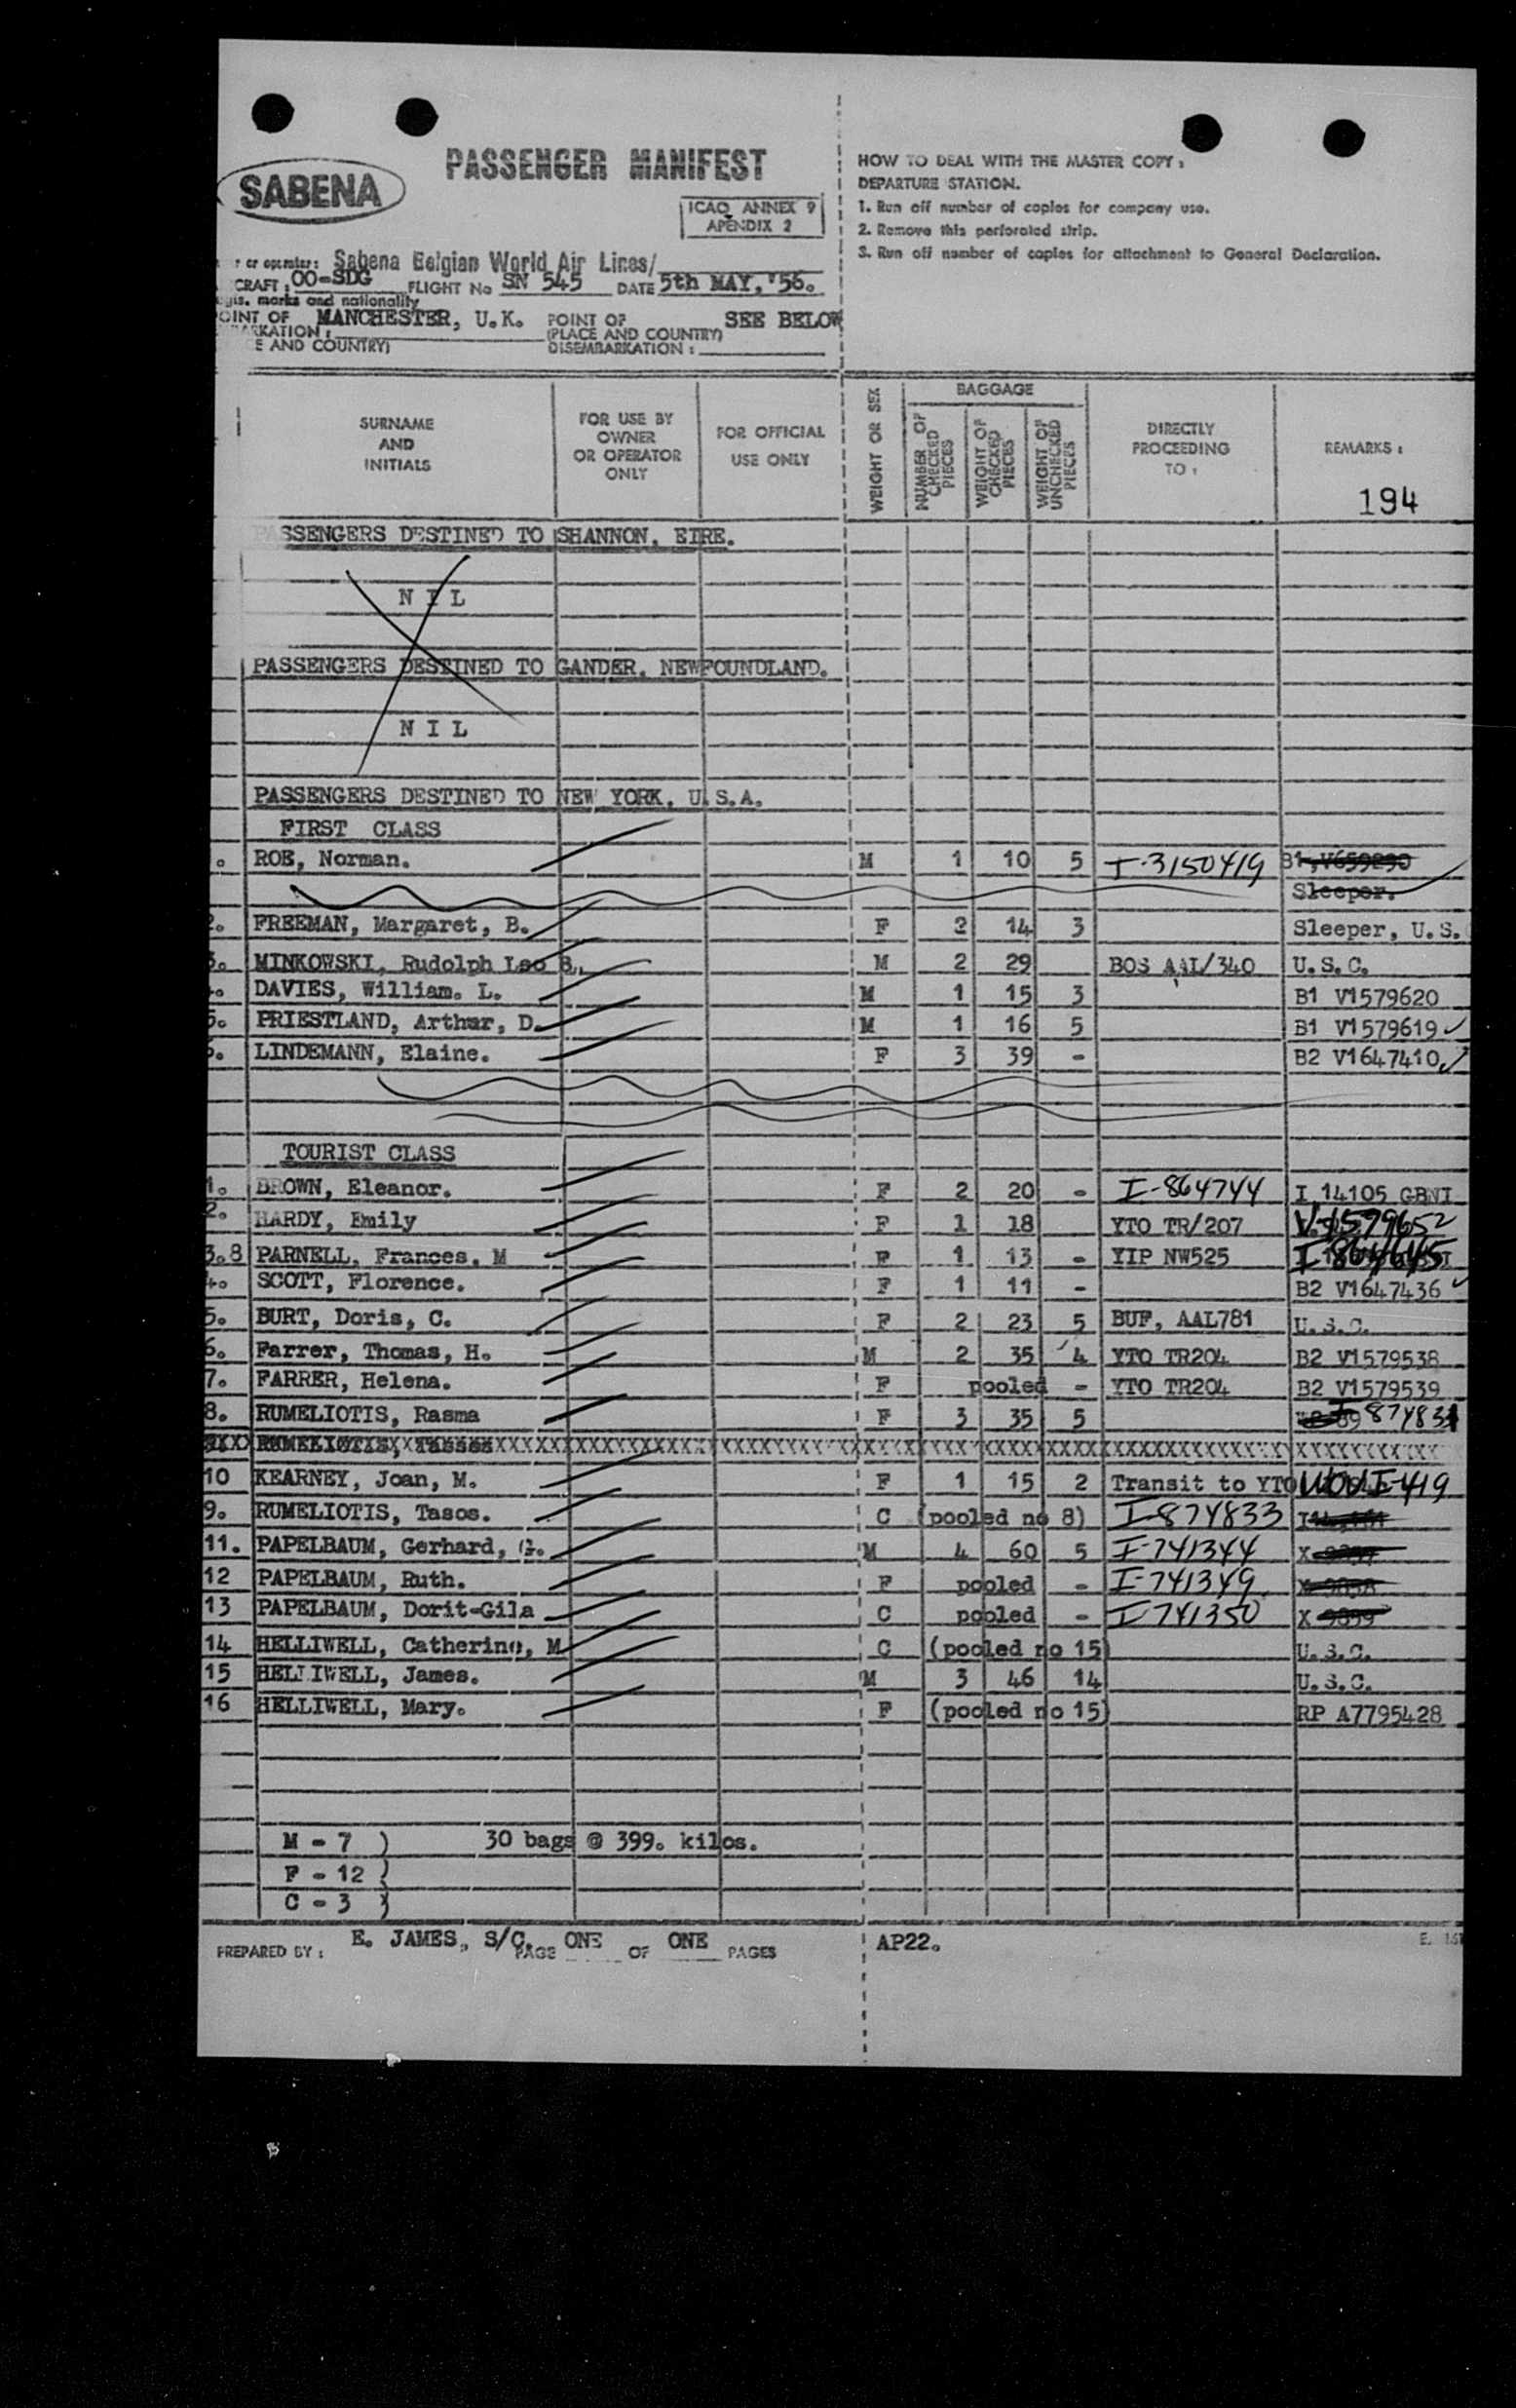 SABENA
PASSENGER MANIFEST
ICAO ANNEX 9
APENDIX 2
HOW TO DEAL WITH THE MASTER COPY :
DEPARTURE STATION.
1. Run off number of copies for company use.
2. Remove this perforated strip.
3. Run off number of copies for attachment to General Declaration.
r or operator: Sabena Belgian World Air Lines/
CRAFT : OO-SDG FLIGHT No SN 545 DATE 5th MAY, '56.
gis. marks and nationality
OINT OF MANCHESTER, U.K. POINT OF SEE BELOW
ARKATION : (PLACE AND COUNTRY)
E AND COUNTRY) DISEMBARKATION :
SURNAME AND INITIALS
FOR USE BY OWNER OR OPERATOR ONLY
FOR OFFICIAL USE ONLY
WEIGHT OR SEX
BAGGAGE
NUMBER OF CHECKED PIECES
WEIGHT OF CHECKED PIECES
WEIGHT OF UNCHECKED PIECES
DIRECTLY PROCEEDING TO :
REMARKS :
194
PASSENGERS DESTINED TO SHANNON, EIRE.
N I L
PASSENGERS DESTINED TO GANDER, NEWFOUNDLAND.
N I L
PASSENGERS DESTINED TO NEW YORK, U.S.A.
FIRST CLASS
. ROE, Norman. M 1 10 5 I-3150419 B1, V659290
Sleeper.
2. FREEMAN, Margaret, B. F 2 14 3 Sleeper, U.S.
3. MINKOWSKI, Rudolph Leo B. M 2 29 BOS AAL/340 U.S.C.
4. DAVIES, William. L. M 1 15 3 B1 V1579620
5. PRIESTLAND, Arthur, D. M 1 16 5 B1 V1579619
6. LINDEMANN, Elaine. F 3 39 - B2 V1647410
TOURIST CLASS
1. BROWN, Eleanor. F 2 20 - I-864744 I 14105 GBNI
2. HARDY, Emily F 1 18 YTO TR/207 V-1579652
3.8 PARNELL, Frances. M F 1 13 - YIP NW525 I 864645
4. SCOTT, Florence. F 1 11 - B2 V1647436
5. BURT, Doris, C. F 2 23 5 BUF, AAL781 U.S.C.
6. Farrer, Thomas, H. M 2 35 4 YTO TR204 B2 V1579538
7. FARRER, Helena. F pooled - YTO TR204 B2 V1579539
8. RUMELIOTIS, Rasma F 3 35 5 I 874831
RUMELIOTIS, Tassos
10 KEARNEY, Joan, M. F 1 15 2 Transit to YTO
9. RUMELIOTIS, Tasos. C (pooled no 8) I-874833
11. PAPELBAUM, Gerhard, G. M 4 60 5 I-741344 X
12 PAPELBAUM, Ruth. F pooled - I-741349 X 9858
13 PAPELBAUM, Dorit-Gila C pooled - I-741350 X 9859
14 HELLIWELL, Catherine, M C (pooled no 15) U.S.C.
15 HELLIWELL, James. M 3 46 14 U.S.C.
16 HELLIWELL, Mary. F (pooled no 15) RP A7795428
M - 7 ) 30 bags @ 399. kilos.
F - 12 )
C - 3 )
PREPARED BY : E. JAMES, S/C. PAGE ONE OF ONE PAGES AP22.